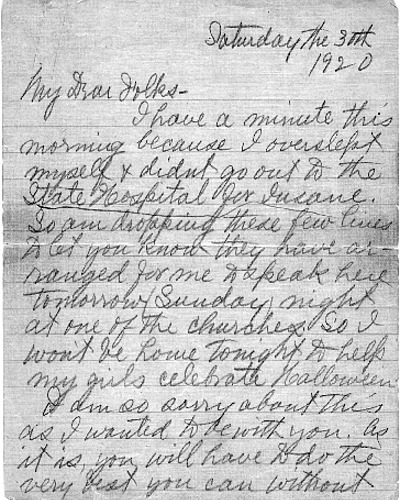 Saturday the 30th
1920
My Dear Folks-
I have a minute this
morning because I overslept
myself & didnt go out to the
State Hospital for Insane.
So am dropping these few lines
to let you know they have ar-
ranged for me to speak here
tomorrow (Sunday) night
at one of the churches. So I
won't be home tonight to help
my girls celebrate Halloween.
I am so sorry about this
as I wanted to be with you. As
it is, you will have to do the
very best you can without